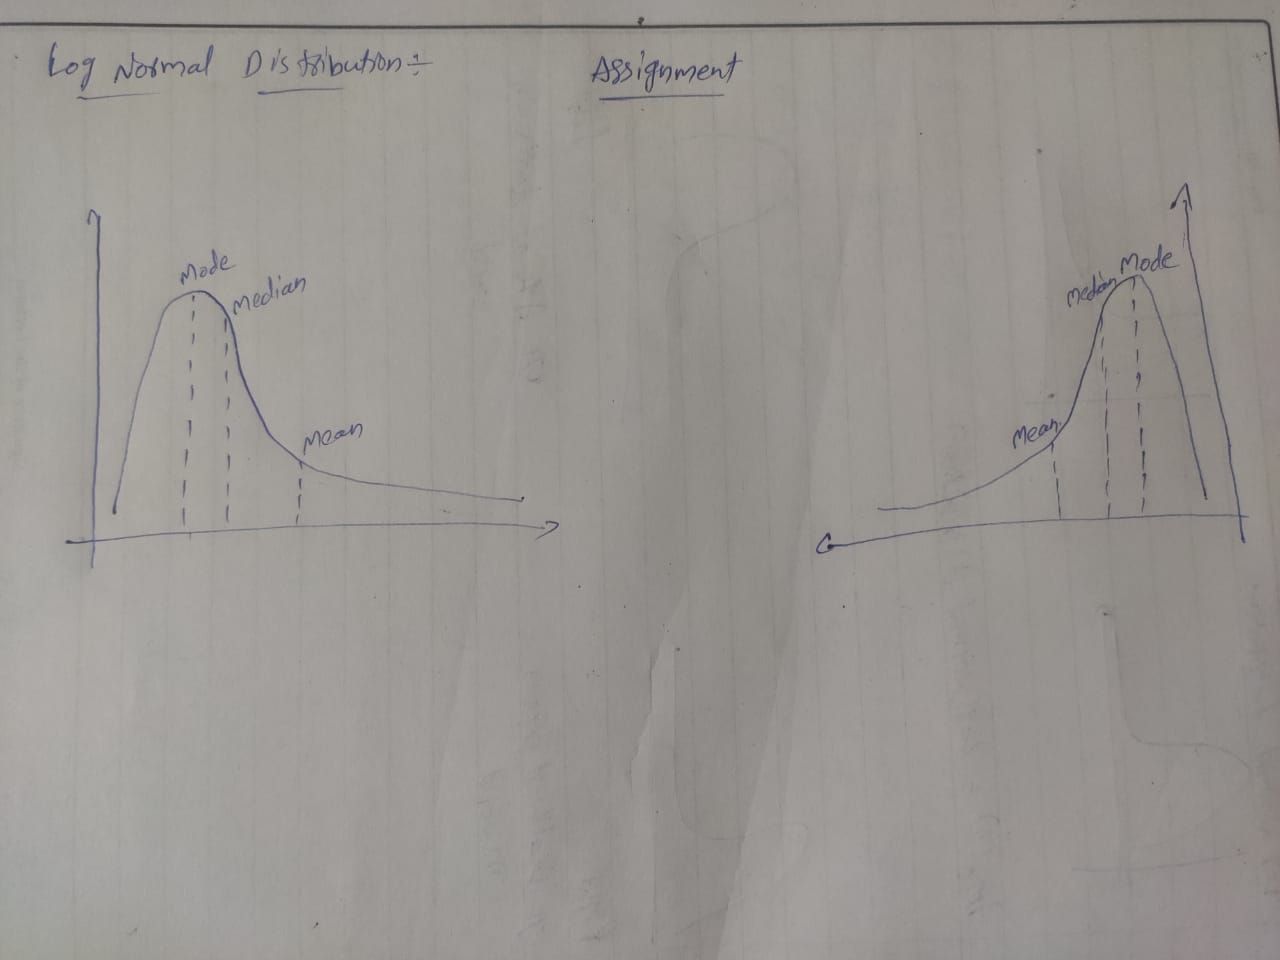 Log Normal Distribution:- Assignment
Mode
Median
Mean
Median Mode
Mean